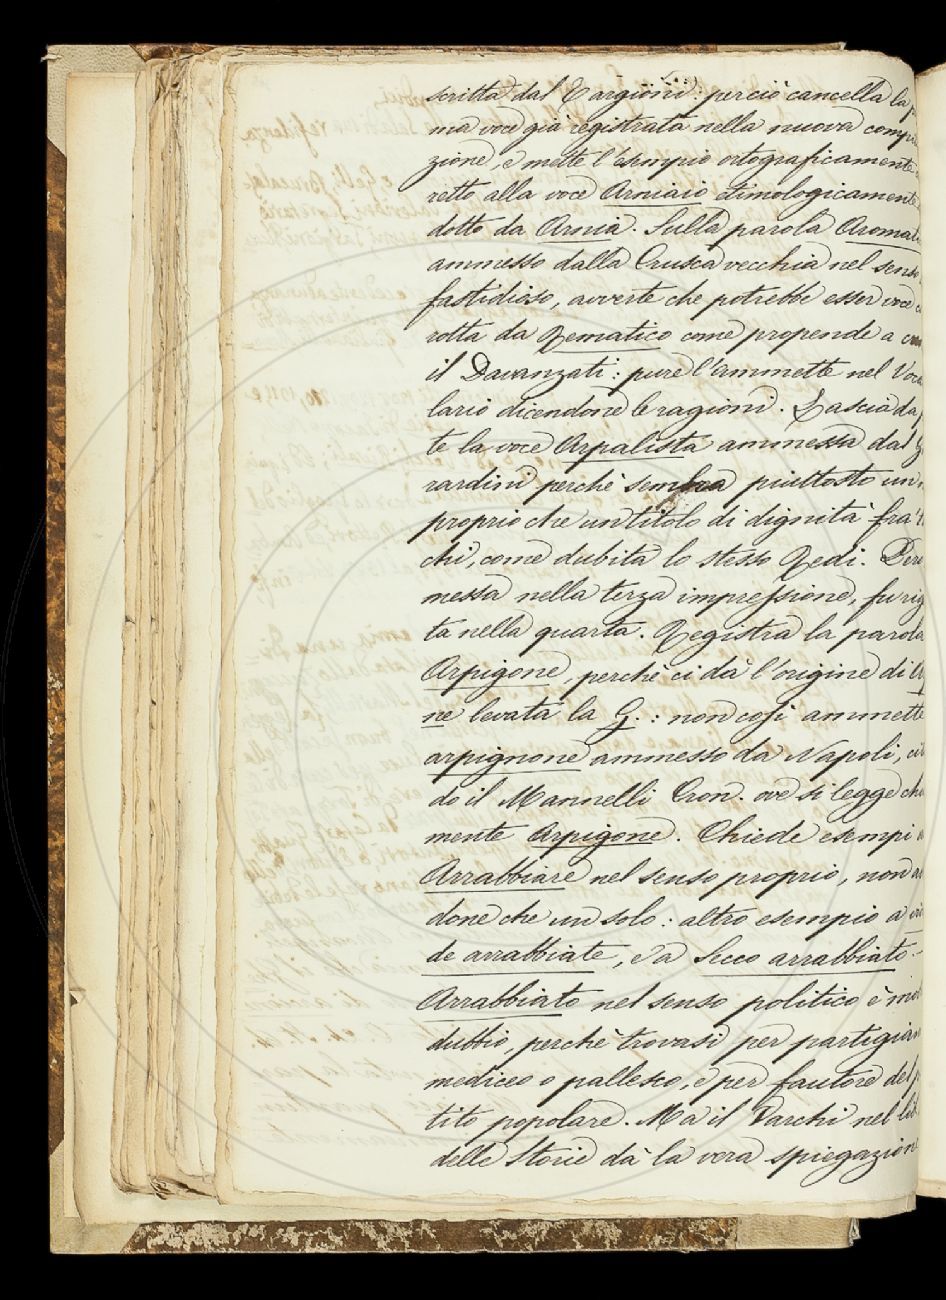 scritta dal Targioni: perciò cancella la
ma voce già registrata nella nuova
zione, e mette l'esempio ortograficamente
retto alla voce Arniaio etimologicamente
dotto da Arnia. Sulla parola
ammesso dalla Crusca vecchia nel senso
fastidioso, avverte che potrebbe esser voce
rotta da Rematico come propende a
il Davanzati: pure l'ammette nel
lario dicendone le ragioni. Lascia da
te la voce Arpalista ammessa dal
rardini perchè sembra piuttosto un
proprio che un titolo di dignità fra
chi, come dubita lo stesso Redi.
messa nella terza impressione, fu
ta nella quarta. Registra la parola
Arpigone, perchè ci dà l'origine di
ne levata la G.: non così ammette
arpignone ammesso da Napoli,
do il Mannelli Cron. ove si legge
mente Arpigone. Chiede esempi
Arrabbiare nel senso proprio, non
done che un solo: altro esempio a
de arrabbiate, e a Secco arrabbiato.
Arrabbiato nel senso politico è
dubbio, perchè trovasi per partigian
mediceo o pallesco, e per fautore del
tito popolare. Ma il Varchi nel
delle Storie dà la vera spiegazion